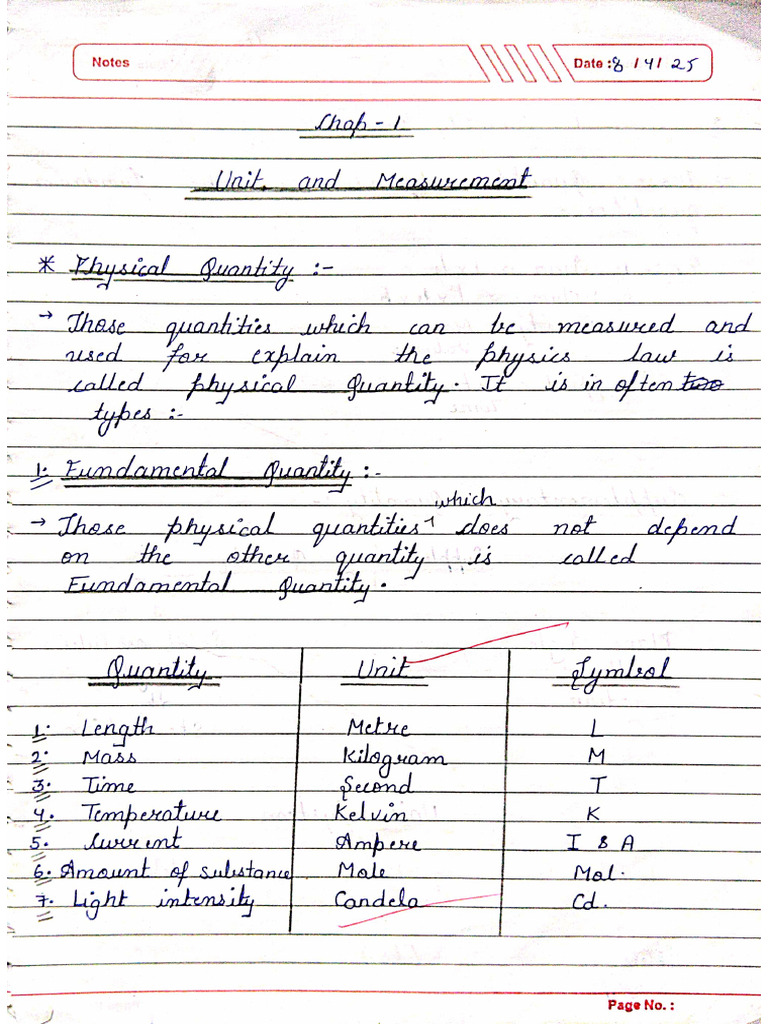 Notes
Date : 8 / 4 / 25
Chap - 1
Unit and Measurement
* Physical Quantity :-
→ Those quantities which can be measured and
used for explain the physics law is
called physical Quantity. It is in often two
types :-
1. Fundamental Quantity :-
→ Those physical quantities which does not depend
on the other quantity is called
Fundamental Quantity.
Quantity Unit Symbol
1. Length Metre L
2. Mass Kilogram M
3. Time Second T
4. Temperature Kelvin K
5. Current Ampere I & A
6. Amount of substance Mole Mol.
7. Light intensity Candela Cd.
Page No. :